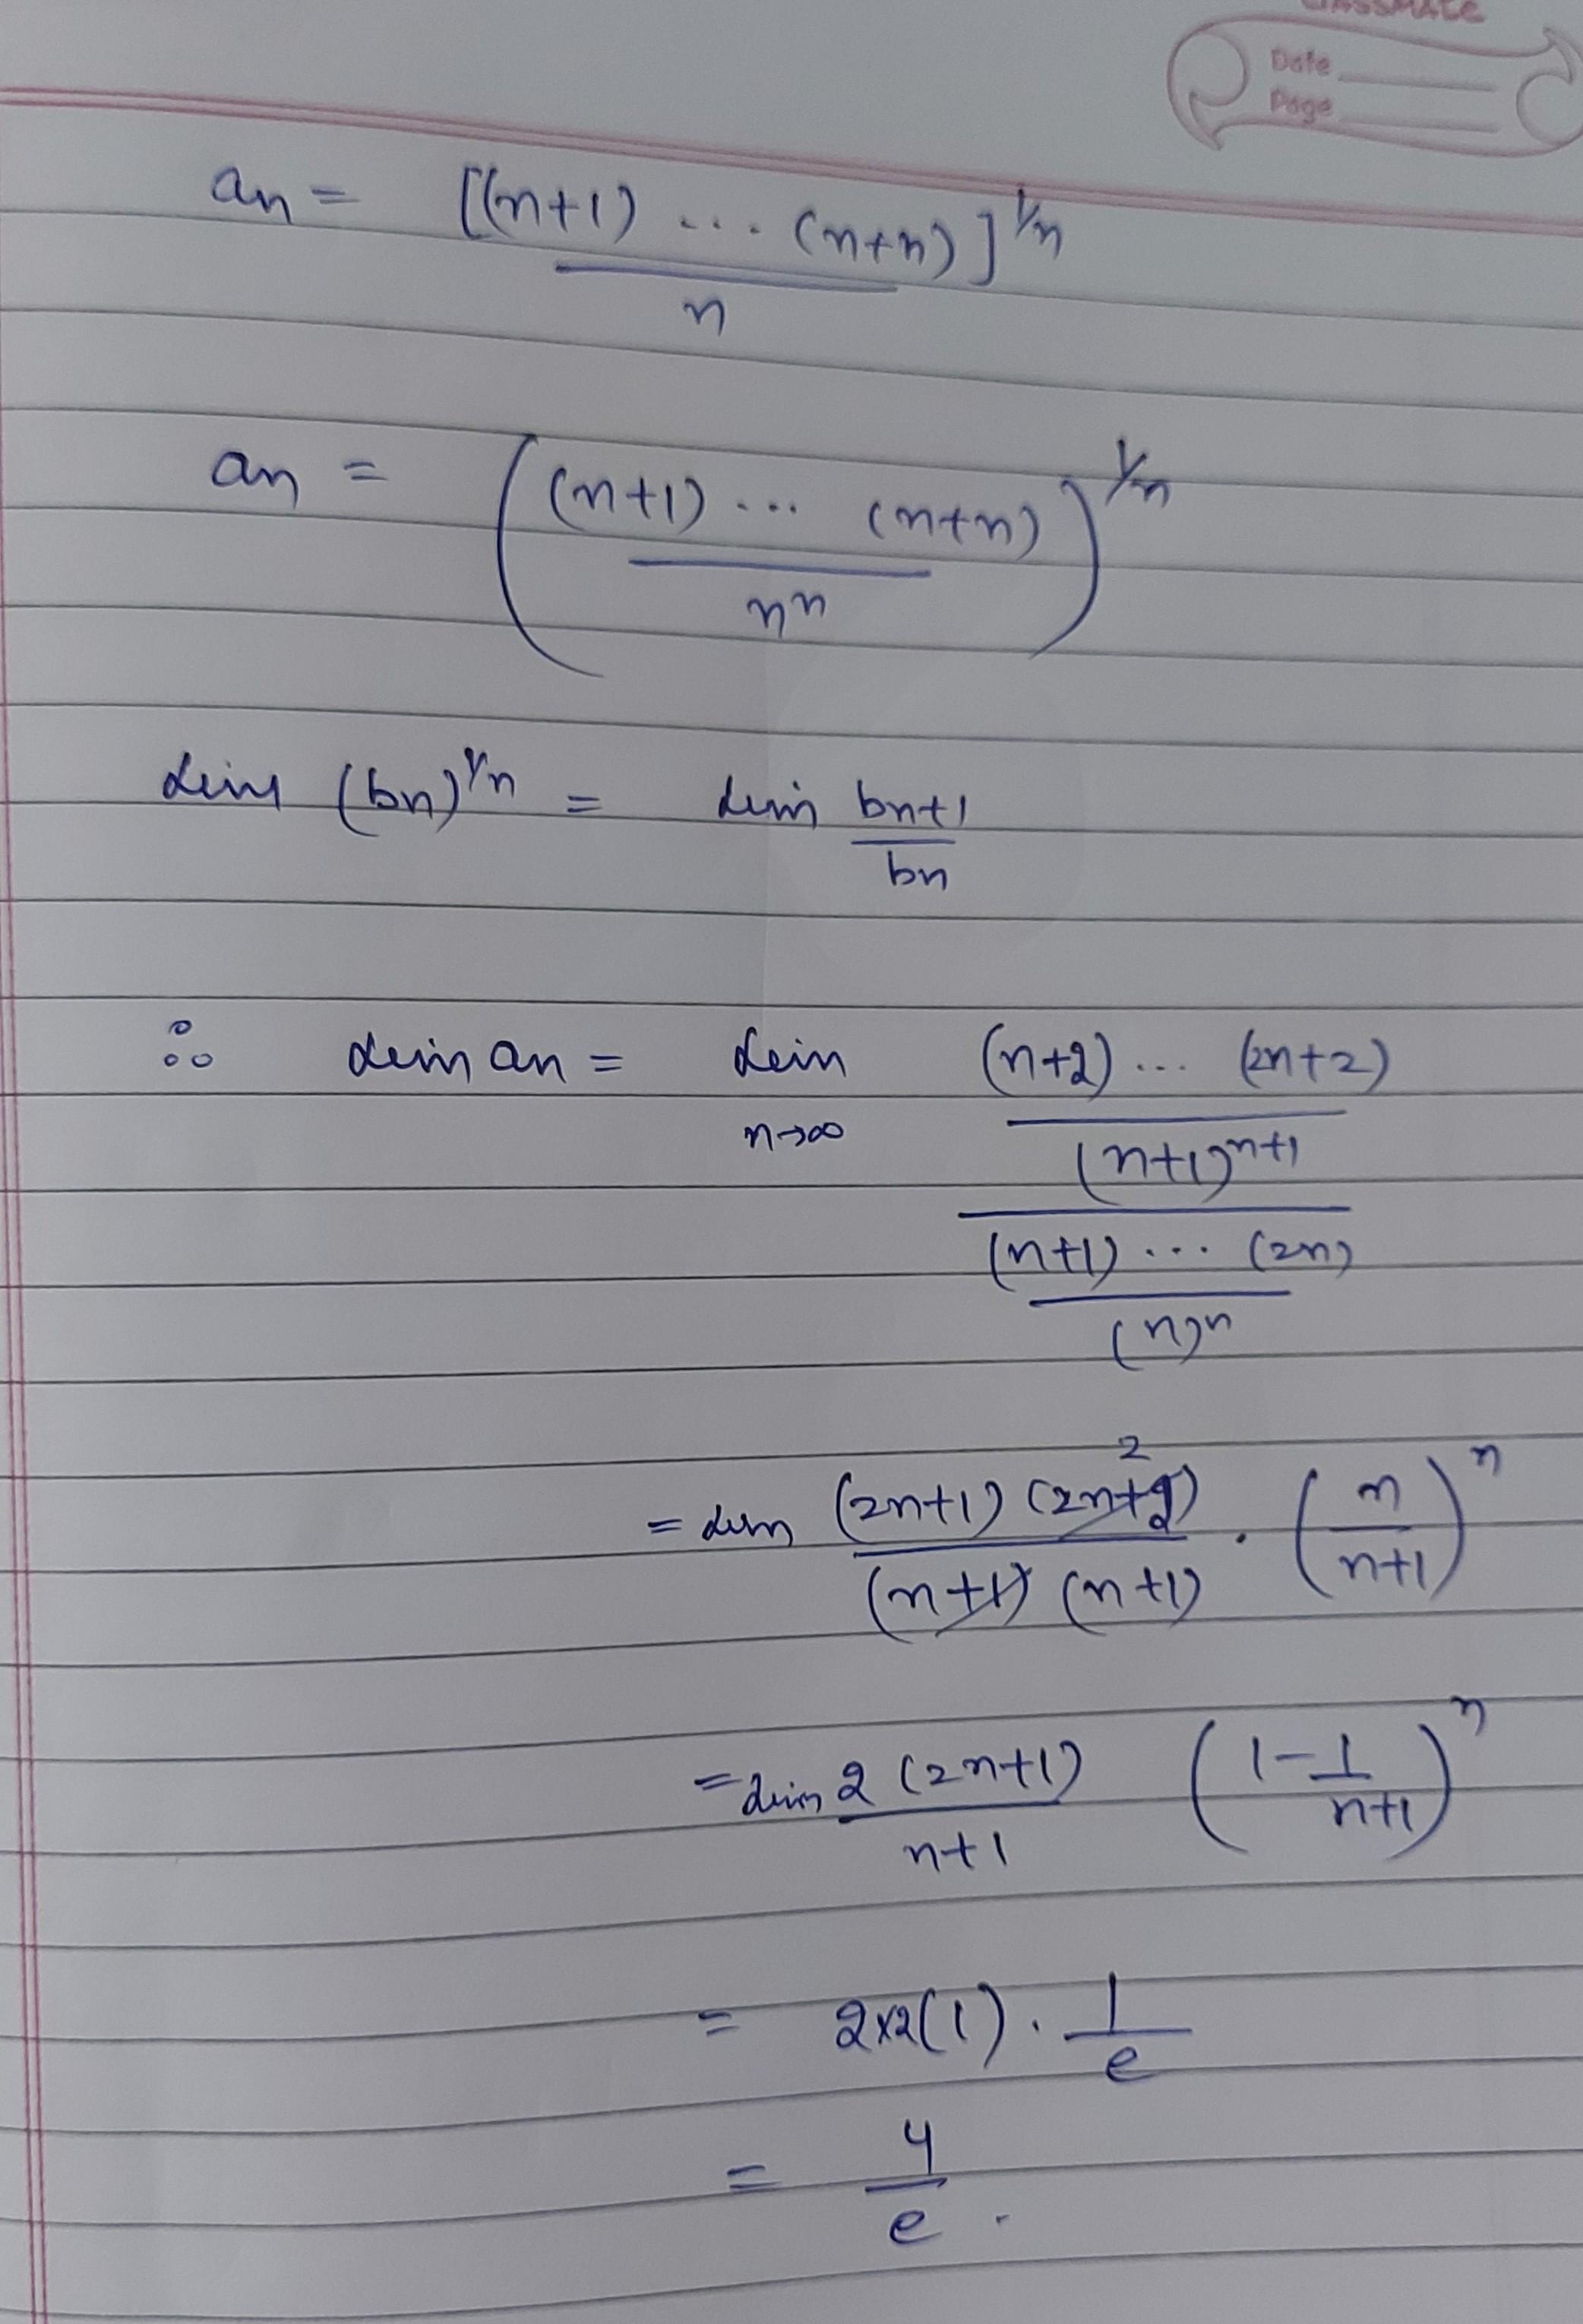 classmate
Date
Page
an = [(n+1) ... (n+n)]^1/n / n
an = ( (n+1) ... (n+n) / n^n )^1/n
lim (bn)^1/n = lim bn+1 / bn
∴ lim an = lim n→∞ (n+2) ... (2n+2) / (n+1)^n+1 / (n+1) ... (2n) / (n)^n
= lim (2n+1) (2n+2) 2 / (n+1) (n+1) . ( n / n+1 )^n
= lim 2 (2n+1) / n+1 ( 1 - 1 / n+1 )^n
= 2x2(1) . 1 / e
= 4 / e .